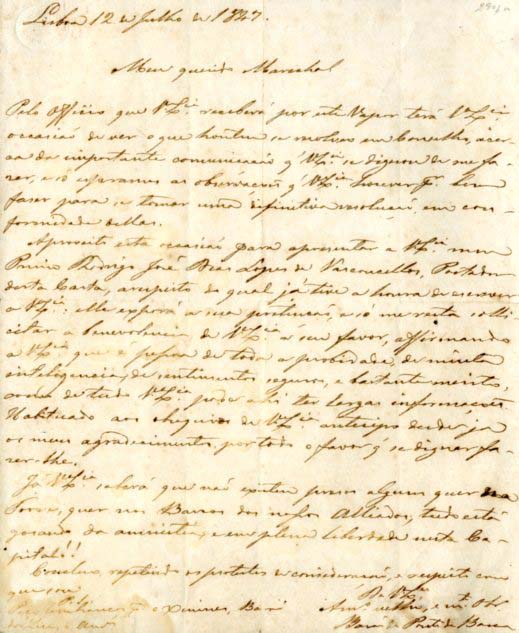 Lisboa 12 de Julho de 1847.
Meu querido Marechal
Pelo Officio que V.Ex.ª receberá por este Vapor terá V.Ex.ª
occasião de ver o que hontem se resolveu em Conselho, ácer-
ca da importante comunicação q' V.Ex.ª se dignou de me fa-
zer, e só esperamos as observações q' V.Ex.ª houver p.r bem
fazer para se tomar uma difinitiva resolução, em con-
formidade dellas.
Aproveito esta occasião para apresentar a V.Ex.ª meu
Primo Rodrigo José Lopes de Vasconcellos, Portador
desta Carta, a respeito do qual já tive a honra de escrever
a V.Ex.ª Elle exporá a sua pertenção, e só me resta solli-
citar a benevolencia de V.Ex.ª a seu favor, affirmando
a V.Ex.ª que é pessoa de toda a probidade, de muita
inteligencia, de sentimentos seguros, e bastante merito,
e de tudo V.Ex.ª poderá ter largas informações.
Habituado aos obsequios de V.Ex.ª antecipo desde já
os meus agradecimentos por todo o favor q' se dignar fa-
zer-lhe.
Já V.Ex.ª saberá que não existem presos alguns quer na
Torre, quer nos Barcos dos nossos Alliados, tudo está
gosando da amnistia, e em plena liberdade nesta Ca-
pital!!
Concluo, repetindo os protestos de consideração, e respeito com
que sou
De V.Ex.ª
Barão da